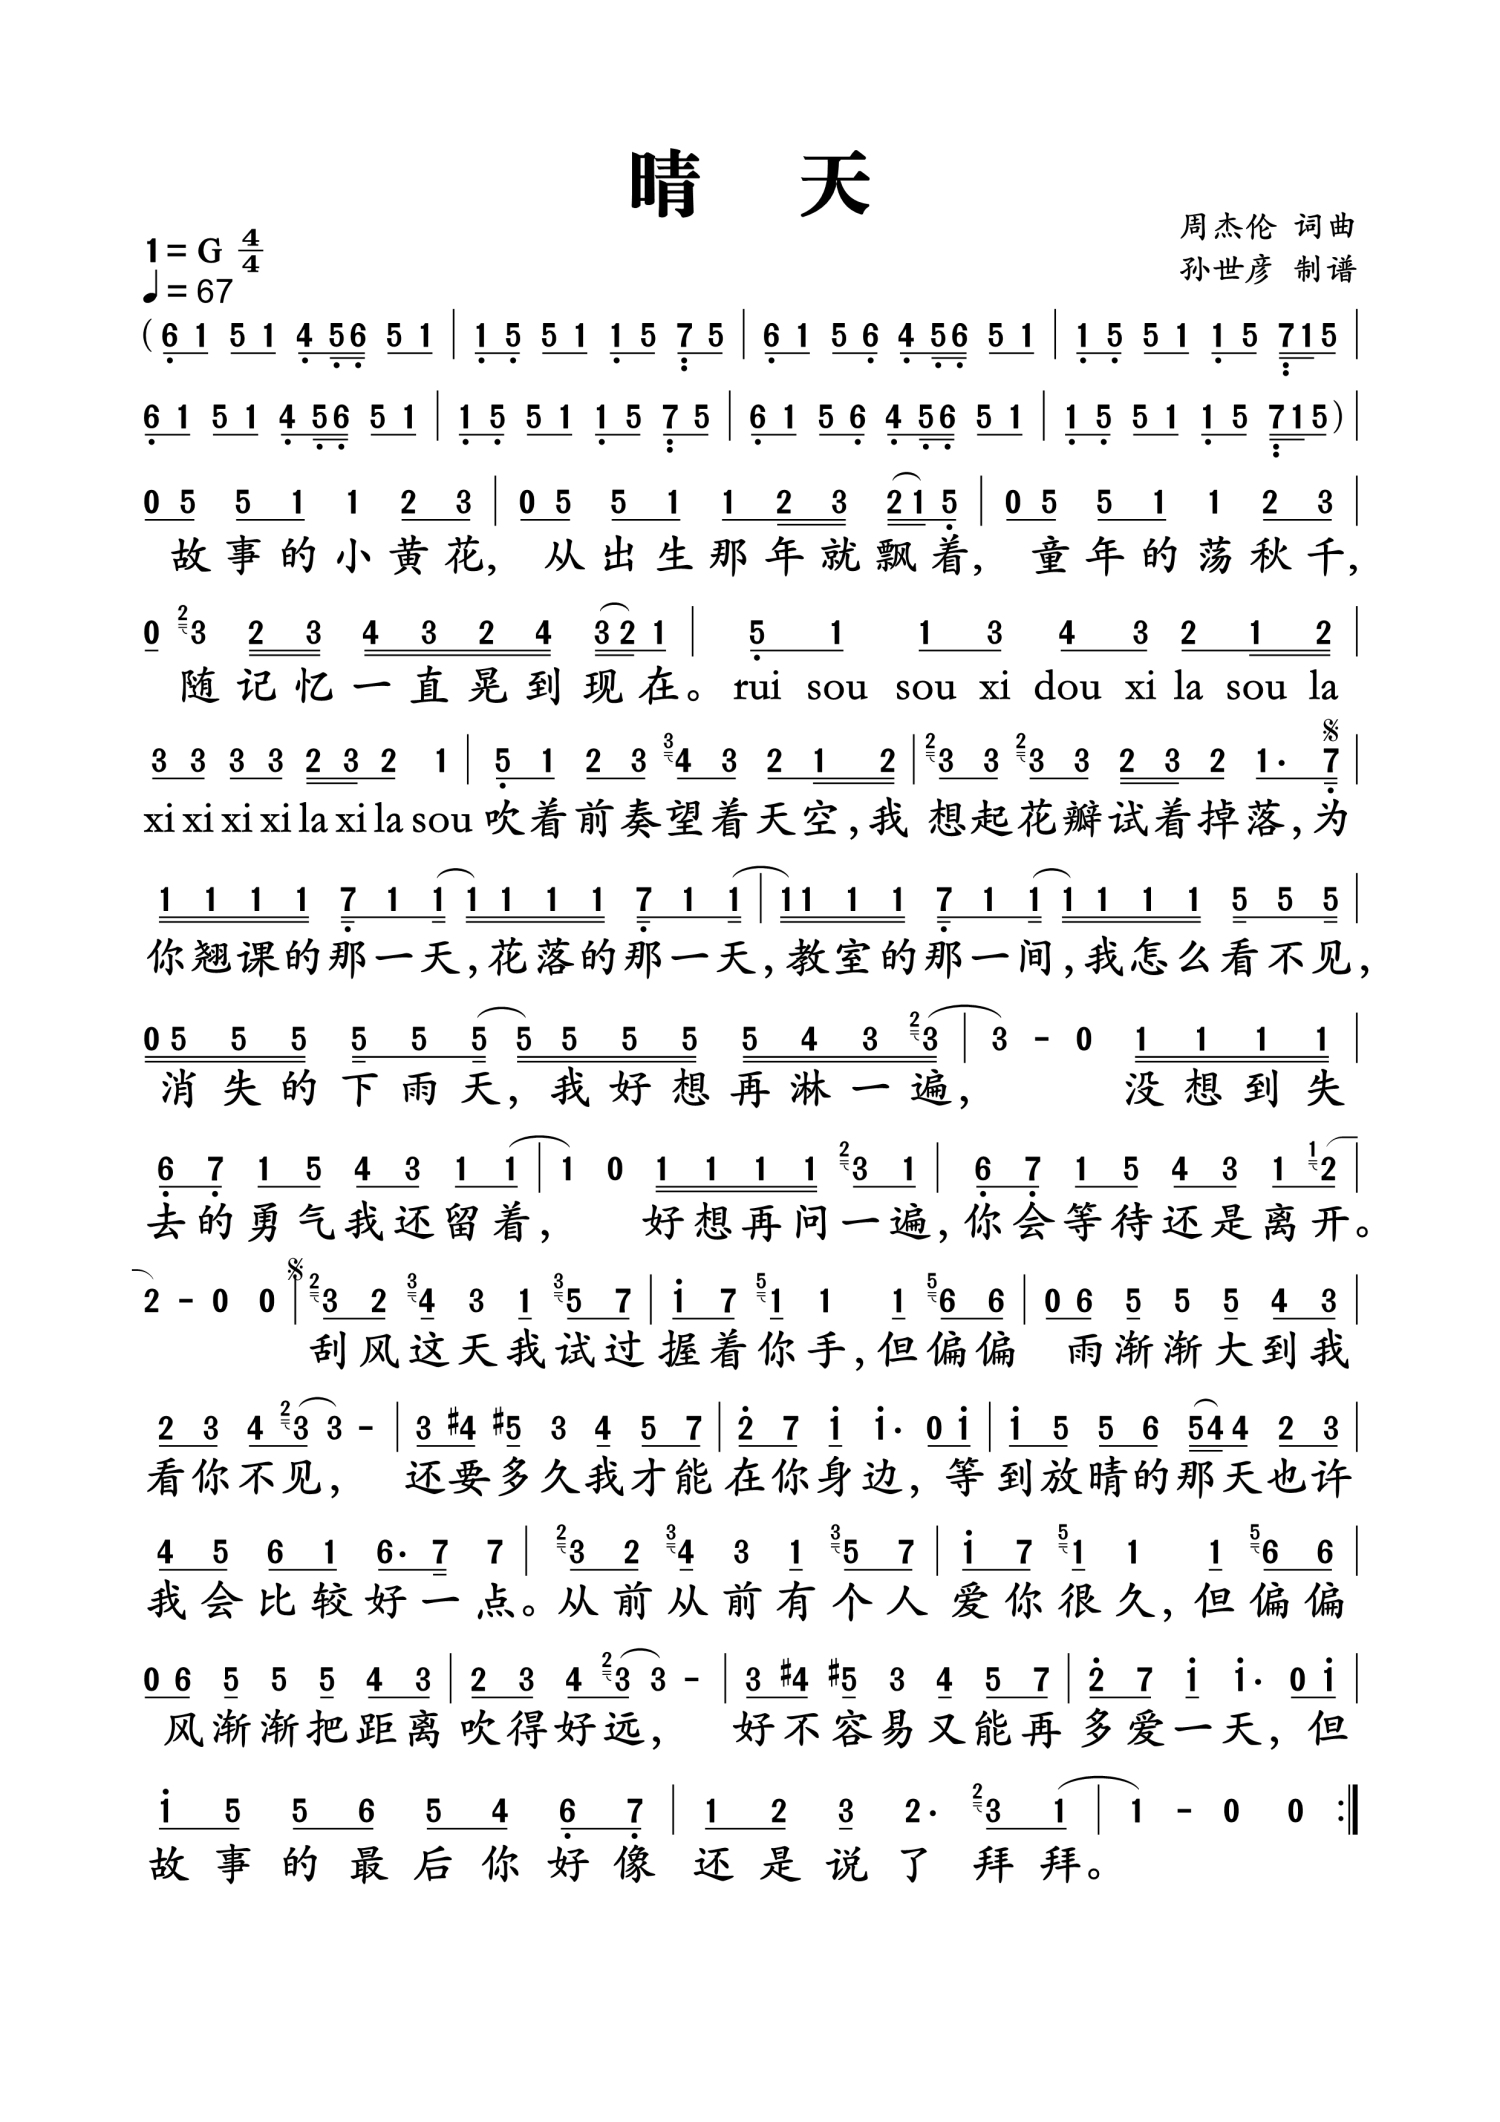 晴 天
周杰伦 词曲
1=G 4/4
孙世彦 制谱
♩=67
(6 1 5 1 4 5 6 5 1 | 1 5 5 1 1 5 7 5 | 6 1 5 6 4 5 6 5 1 | 1 5 5 1 1 5 7 1 5 |
6 1 5 1 4 5 6 5 1 | 1 5 5 1 1 5 7 5 | 6 1 5 6 4 5 6 5 1 | 1 5 5 1 1 5 7 1 5) |
0 5 5 1 1 2 3 | 0 5 5 1 1 2 3 2 1 5 | 0 5 5 1 1 2 3 |
故事的小黄花, 从出生那年就飘着, 童年的荡秋千,
0 2 3 2 3 4 3 2 4 3 2 1 | 5 1 1 3 4 3 2 1 2 |
随记忆一直晃到现在。rui sou sou xi dou xi la sou la
3 3 3 3 2 3 2 1 | 5 1 2 3 3 4 3 2 1 2 | 2 3 3 2 3 3 2 3 2 1· 7 |
xi xi xi xi la xi la sou 吹着前奏望着天空,我 想起花瓣试着掉落,为
1 1 1 1 7 1 1 1 1 1 1 7 1 1 | 1 1 1 1 7 1 1 1 1 1 1 5 5 5 |
你翘课的那一天,花落的那一天,教室的那一间,我怎么看不见,
0 5 5 5 5 5 5 5 5 5 5 5 4 3 2 3 | 3 - 0 1 1 1 1 |
消失的下雨天,我好想再淋一遍, 没想到失
6 7 1 5 4 3 1 1 | 1 0 1 1 1 1 2 3 1 | 6 7 1 5 4 3 1 1 2 |
去的勇气我还留着, 好想再问一遍,你会等待还是离开。
2 - 0 0 | 2 3 2 3 4 3 1 3 5 7 | 1 7 5 1 1 1 5 6 6 | 0 6 5 5 5 4 3 |
刮风这天我试过 握着你手,但偏偏 雨渐渐大到我
2 3 4 2 3 3 - | 3 #4 #5 3 4 5 7 | 2 7 1 1· 0 1 | 1 5 5 6 5 4 4 2 3 |
看你不见, 还要多久我才能 在你身边, 等到放晴的那天也许
4 5 6 1 6· 7 7 | 2 3 2 3 4 3 1 3 5 7 | 1 7 5 1 1 1 5 6 6 |
我会比较好一点。从前从前有个人 爱你很久,但偏偏
0 6 5 5 5 4 3 | 2 3 4 2 3 3 - | 3 #4 #5 3 4 5 7 | 2 7 1 1· 0 1 |
风渐渐把距离 吹得好远, 好不容易又能再 多爱一天,但
1 5 5 6 5 4 6 7 | 1 2 3 2· 2 3 1 | 1 - 0 0 :|
故事的最后你好像 还是说了拜拜。